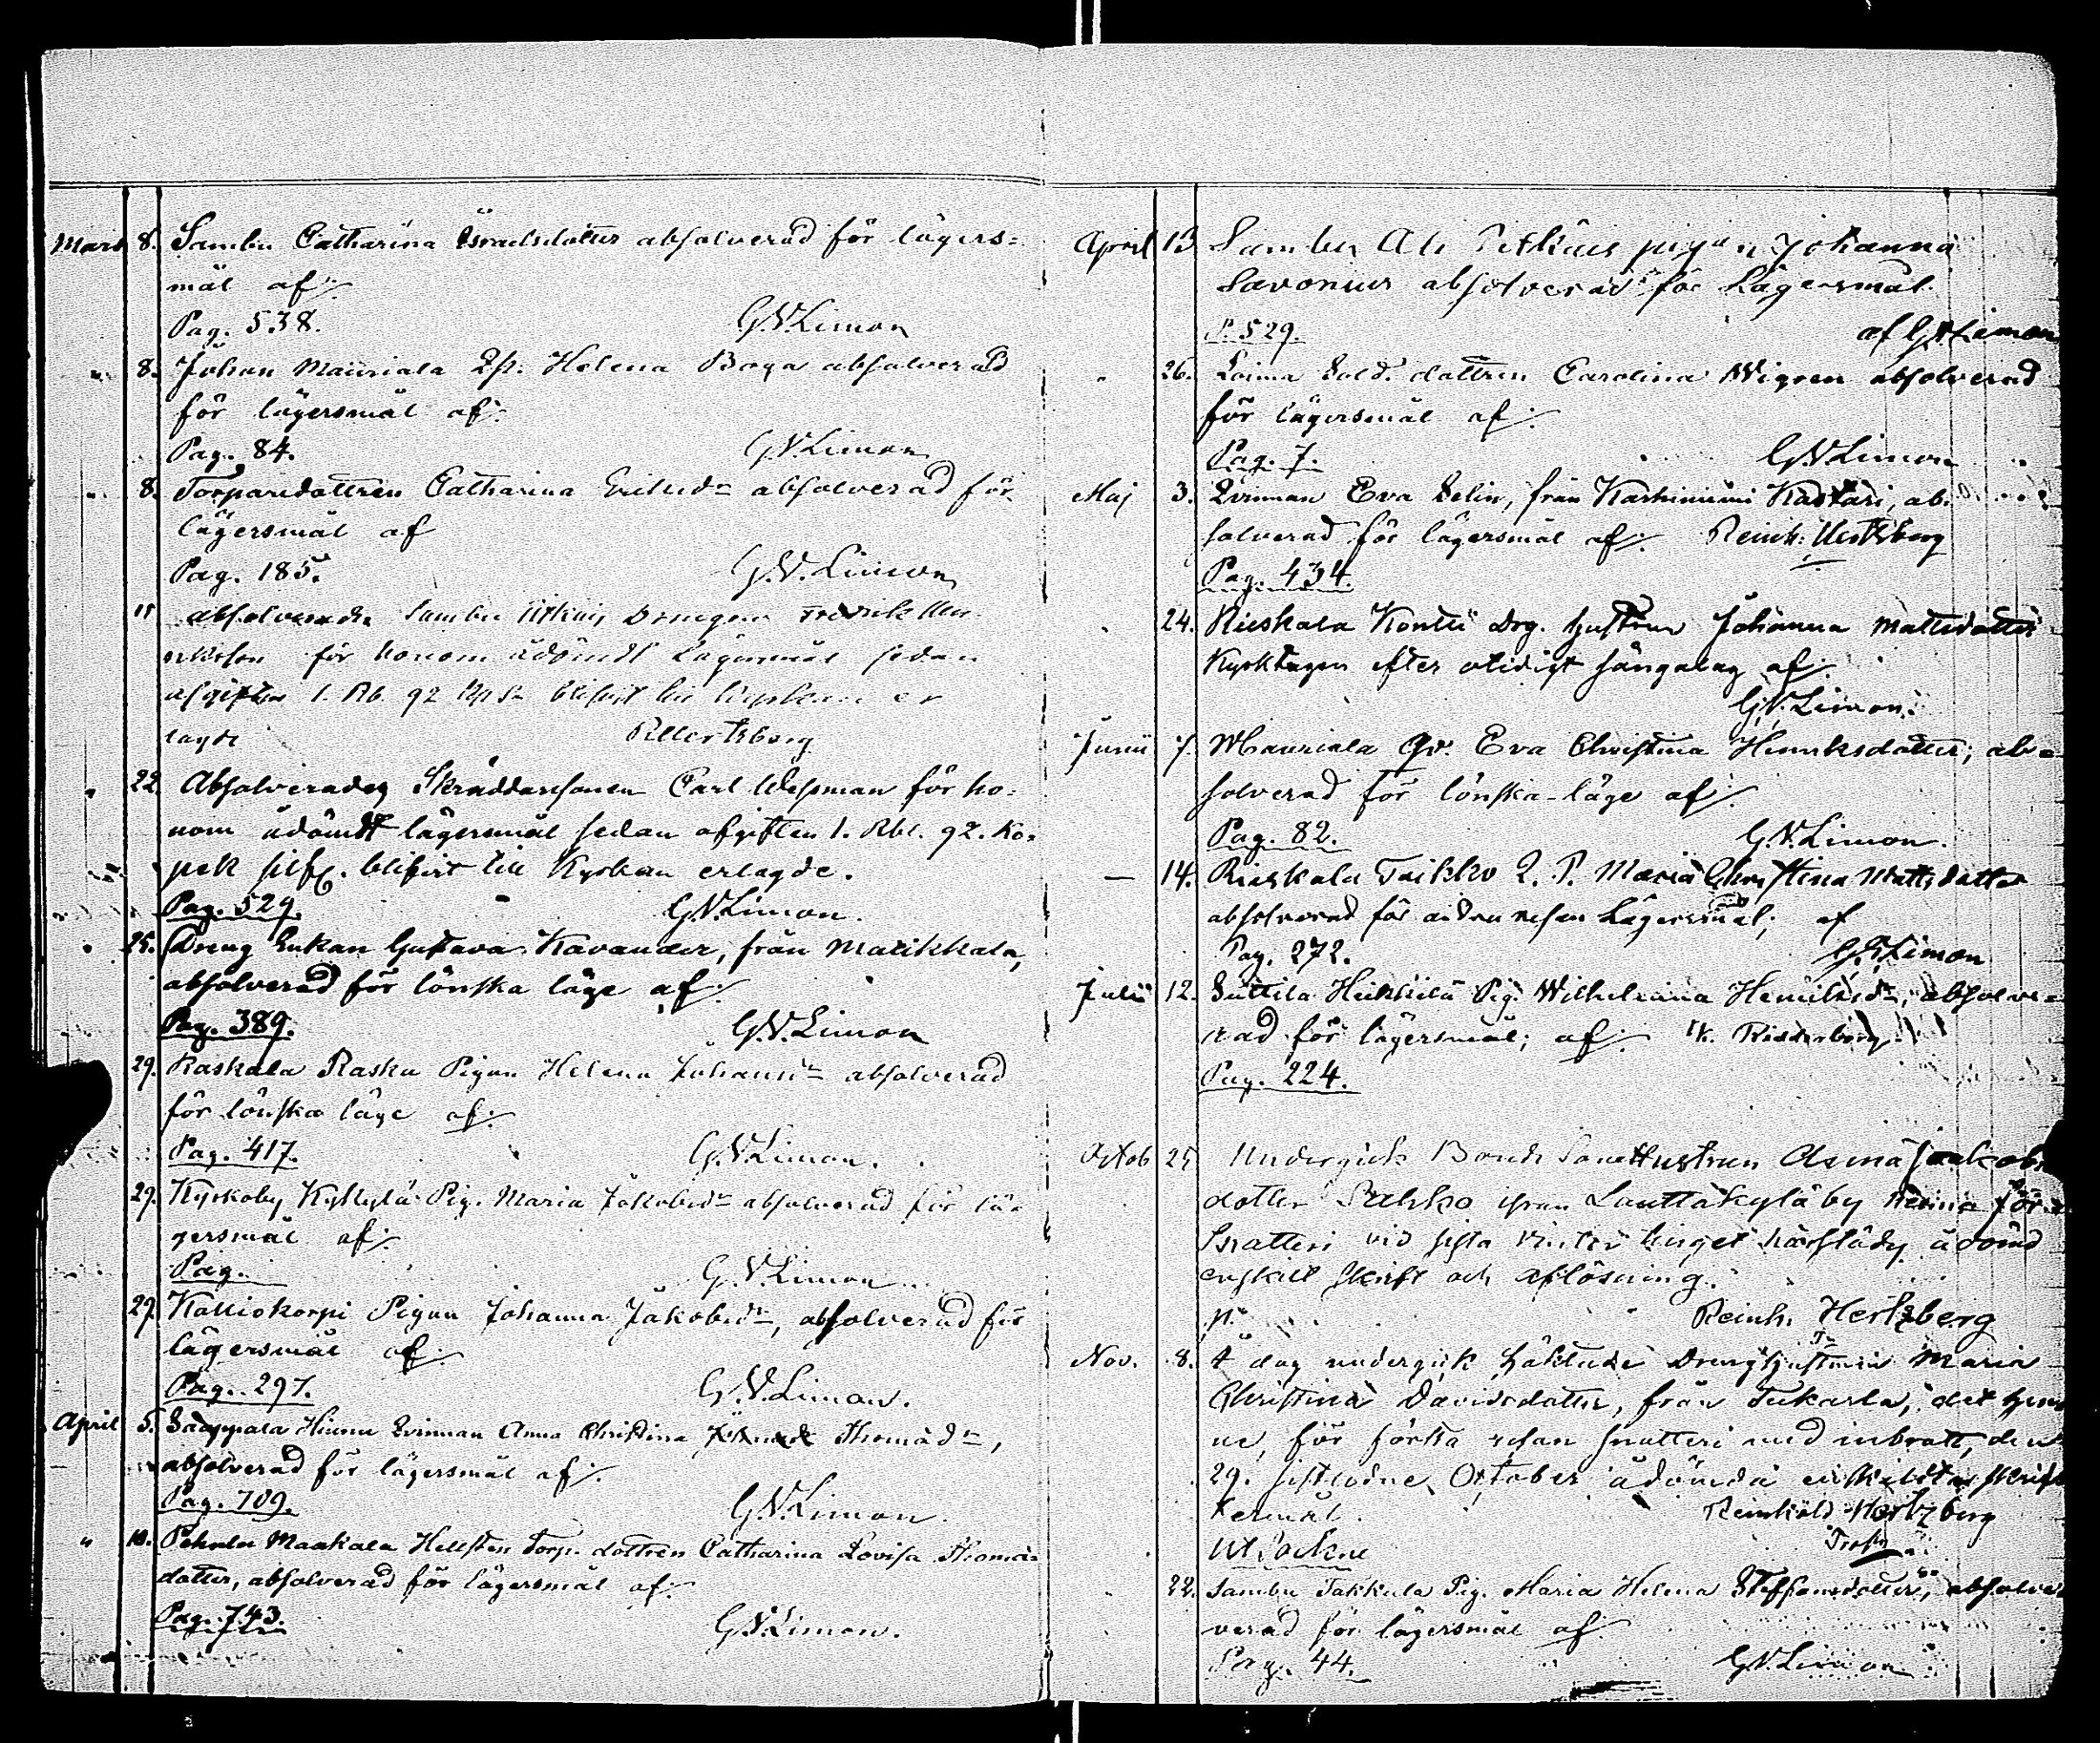 Mars 8. Sambu Catharina Israelsdotter absolverad för lägers=
mål af:
Pag. 538. G.V. Limon
8. Johan Mauriala Qp. Helena Boga absolverad
för lägersmål af:
Pag. 84. G.V. Limon
8. Torparedottren Catharina Ericksdr absolverad för
lägersmål af
Pag. 185. G.V. Limon
15 absolverades Sambu Drengen Fredrik
för honom ådömdt Lägersmål sedan
afgiften 1. Rb. 92 blifvit till kyrkan er
lagde RHertzberg
22. Absolverades Skräddaresonen Carl Wessman för ho=
nom ådömdt lägersmål sedan afgiften 1. Rbl. 92. Ko=
pek silfr. blifvit till Kyrkan erlagde.
Pag. 529. G.V. Limon.
25. Dreng Enkan Gustava Kavander, från Matikkala,
absolverad för lönska läge af:
Pag. 389. G.V. Limon
29. Raskala Rasku Pigan Helena Johansdr absolverad
för lönska läge af:
Pag. 417. G.V. Limon.
29. Kyrkoby Kyläylä Pig. Maria Jakobsdr absolverad för lä=
gersmål af:
Pag. G.V. Limon
29. Kalliokorpi Pigan Johanna Jakobsdr, absolverad för
lägersmål af:
Pag. 297. G.V. Limon.
April 5. Sääppala Hinnu Qvinnan Anna Christina Thomasdr,
absolverad för lägersmål af:
Pag. 709. G.V. Limon.
" 10. Maakala Hellsten Torp. dottren Catharina Lovisa Thomas
dotter, absolverad för lägersmål af:
Pag. 743. G.V. Limon.
April 13 Sambu Ali Pitkäis pigan Johanna
Savonius absolverad för Lägersmål
P. 529. af G.V. Limon
26. Loima Sold. dottren Carolina Wigren absolverad
för lägersmål af:
Pag. 7. G.V. Limon
Maj 3. Qvinnan Eva Selin, från Karhiniemi Kastari, ab=
solverad för lägersmål af: Reinh: Hertzberg
Pag. 434.
24. Rieskala Konttu Drg. hustrun Johanna Mattsdotter
Kyrktagen efter otidigt sängalag af:
G.V. Limon.
Junii 7. Mauriala Qv. Eva Christina Henriksdotter; ab=
solverad för lönska-läge af:
Pag. 82. G.V. Limon.
— 14. Rieskala Taikko Q. P. Maria Christina Mattsdotter
absolverad för andra resan Lägersmål; af
Pag. 272. G.V. Limon
Julii 12. Suttila Heikkilä Pig. Wilhelmina Henriksdr, absolve=
rad för lägersmål; af:
Pag. 224.
Octob 25 Undergick Bonde Sone Hustrun Jaakobs
dotter från Lauttakylä by för
Snatteri vid sista Vinter tinget härstädes ådömd
enskilt skrift och aflösning.
P. Reinh. Hertzberg
Nov. 8. I dag undergick häktade Dreng hustrun Maria
Christina Davidsdotter, från Tukarla, det hen
ne, för första resan snatteri med inbrott, den
29. sistledne October ådömda enskildta skrif
termål. Reinhold Hertzberg
Ut Sockne
22. Sambu Takkula Pig. Maria Helena Steffansdotter, absolve=
verad för lägersmål af
Pag. 44. G.V. Limon